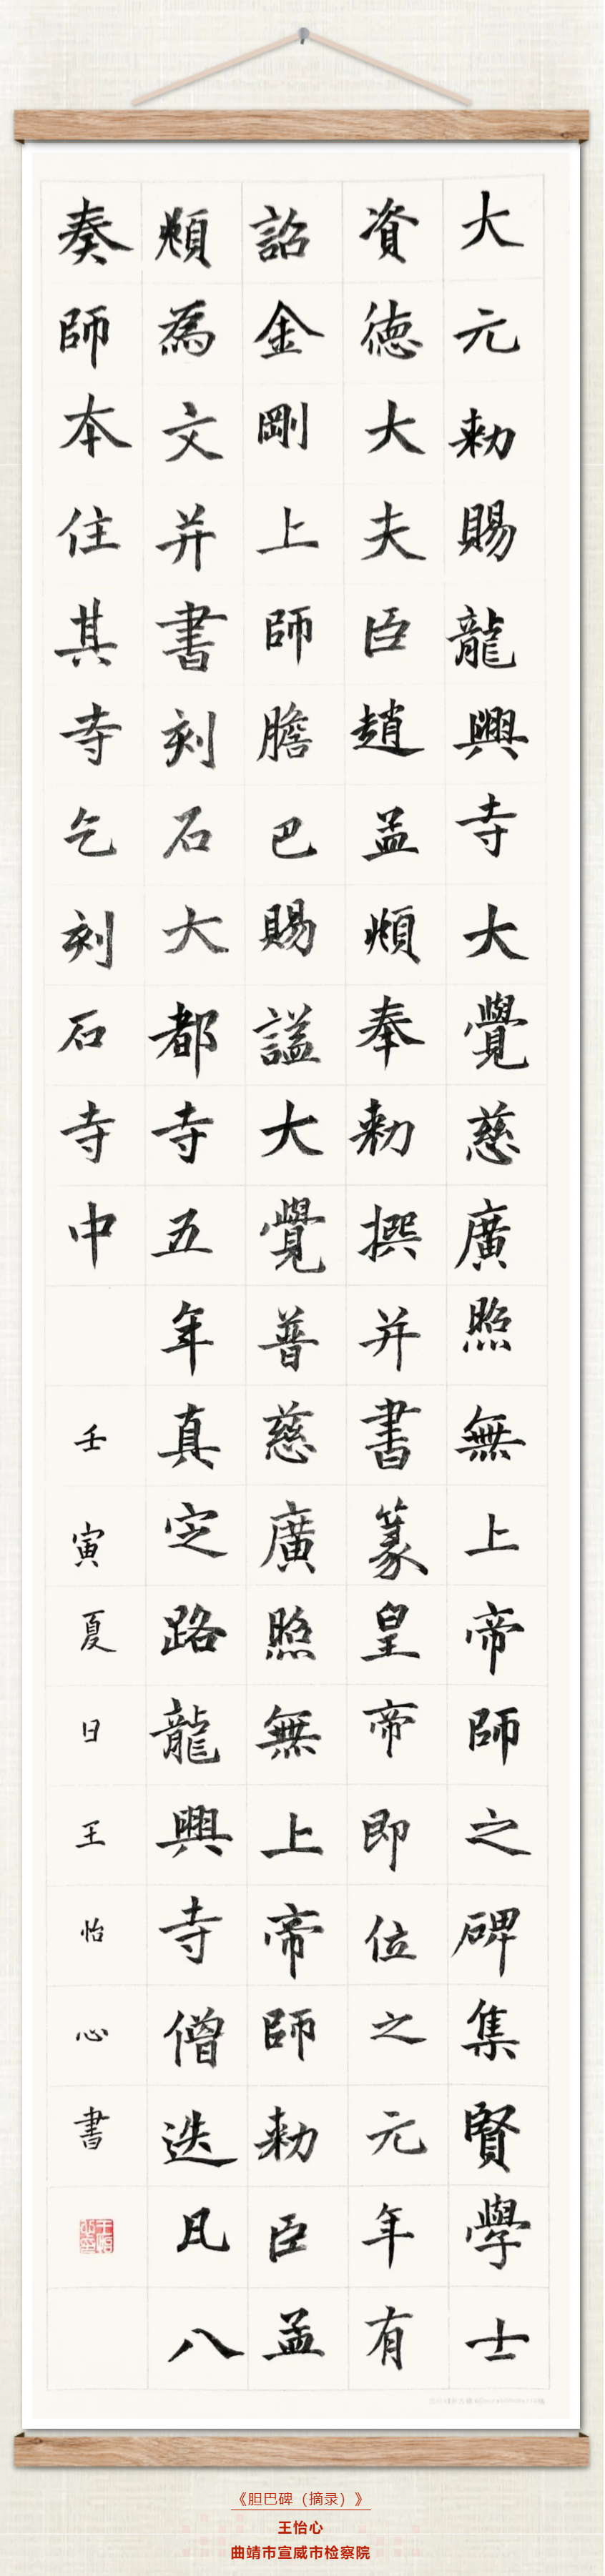 大元勑賜龍興寺大覺慈廣照無上帝師之碑集賢學士
資德大夫臣趙孟頫奉勑撰并書篆皇帝即位之元年有
詔金剛上師膽巴賜謚大覺普慈廣照無上帝師勑臣孟
頫為文并書刻石大都寺五年真定路龍興寺僧迭凡八
奏師本住其寺乞刻石寺中
壬寅夏日王怡心書
《胆巴碑(摘录)》
王怡心
曲靖市宣威市检察院